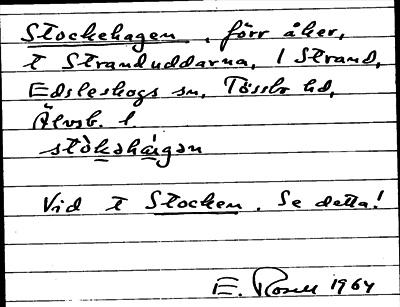 Stockehagen, förr åker,
t Stranduddarna, 1 Strand,
Edsleskogs sn, Tössbo hd,
Älvsb. l.
stòkəhàigən
Vid t Stocken. Se detta!
E. Rosell 1964